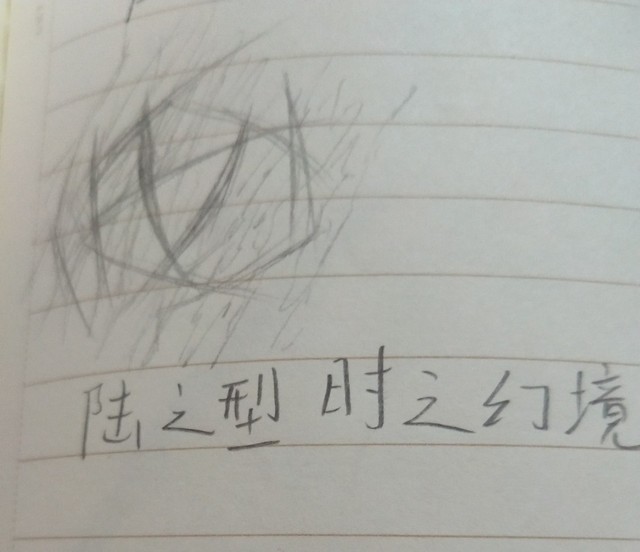 陆之型 时之幻境